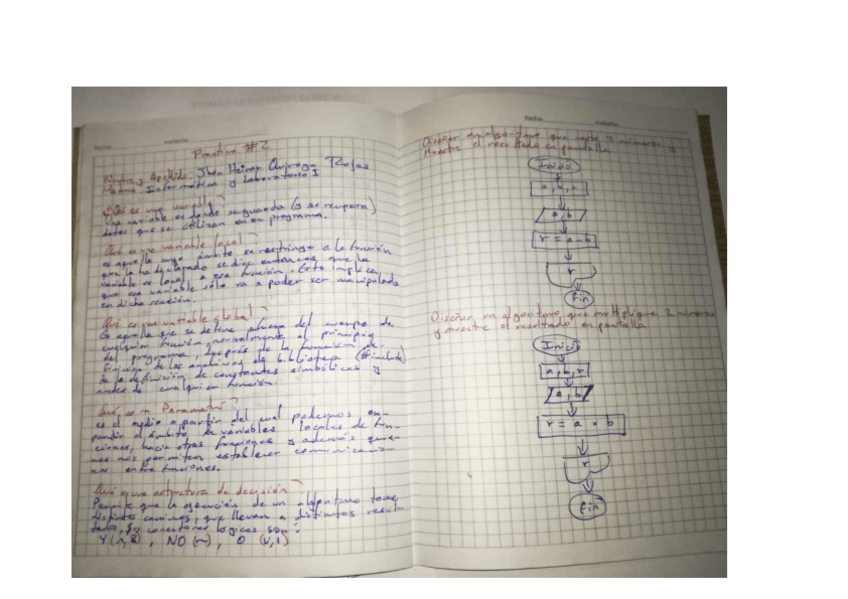 Practica #2
Nombre y Apellido: Jhon Heiner Quiroga Rojas
Informatica y Laboratorio I
¿Qué es una variable?
Una variable es donde se guarda (y se recupera)
datos que se utilizan en un programa.
Qué es una variable local?
es aquella cuyo ámbito se restringe a la función
que la ha declarado se dice entonces que la
variable es local a esa función. Esto implica
que esa variable sólo va a poder ser manipulada
en dicha sección.
Qué es una variable global?
Es aquella que se define afuera del cuerpo de
cualquier función, normalmente al principio
del programa, después de la
de los archivos de biblioteca (#include)
de la definición de constantes simbólicas y
antes de cualquier función.
Qué es un Parametro?
es el medio a partir del cual podemos ex-
pandir el ámbito de variables locales de fun-
ciones, hacia otras funciones y además quie-
nes nos permiten establecer comunicacio-
nes entre funciones.
Qué es una estructura de decisión
Permite que la ejecución de un algoritmo tome
distintos caminos, que llevan a distintos resul-
tados, conectores lógicos son:
Y (∧, &), NO (~), O (∨, |)
Fecha:
Diseñar un algoritmo que reste 2 numeros y
Muestre el resultado en pantalla
Inicio
a, b, r
a, b
r = a - b
r
Fin
Diseñar un algoritmo que multiplique 2 numeros
y muestre el resultado en pantalla
Inicio
a, b, r
a, b
r = a × b
r
Fin